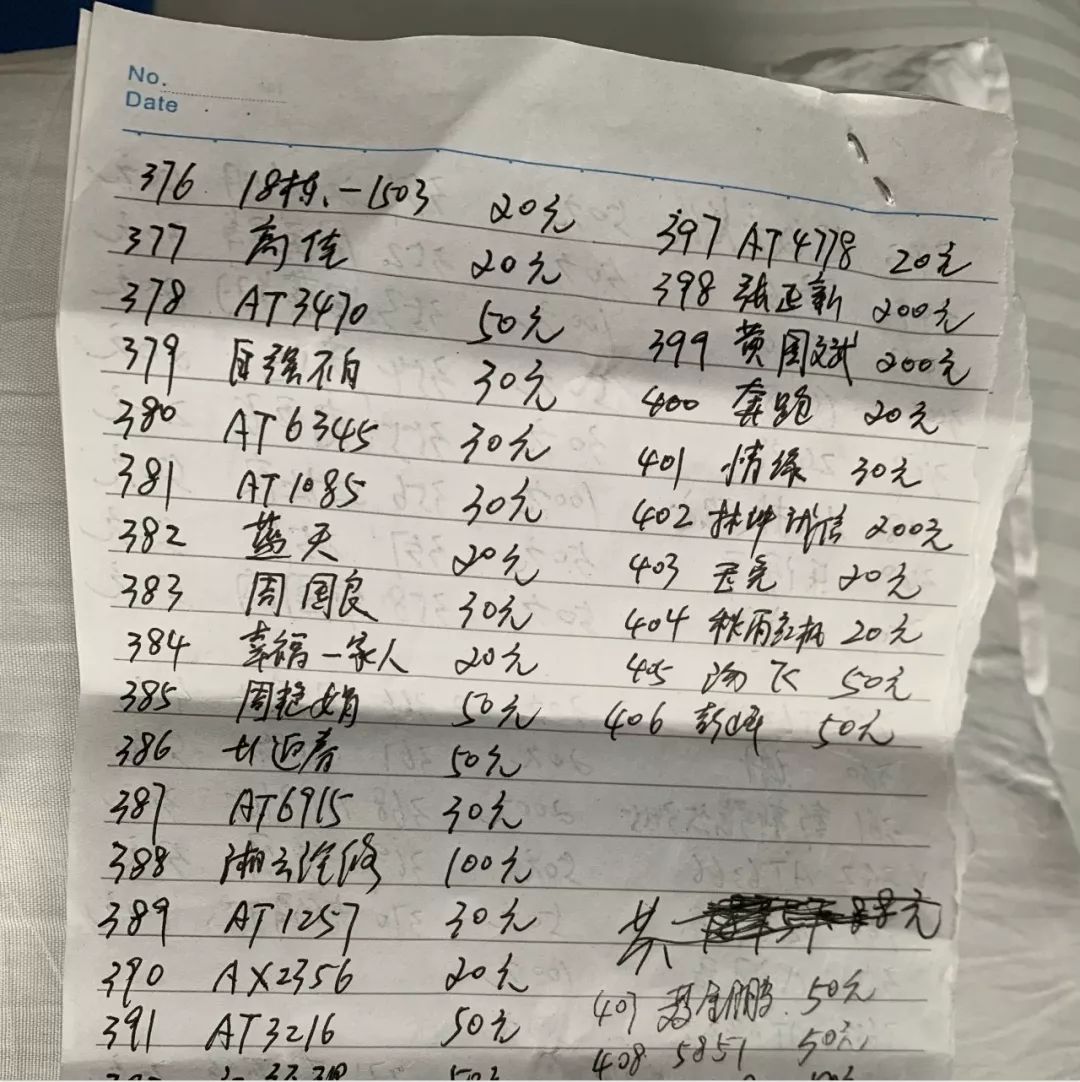 No.
Date
376 18栋-1503 20元
377 高佳 20元
378 AT3470 50元
379 自强不自 30元
380 AT6345 30元
381 AT1085 30元
382 蓝天 20元
383 周国良 30元
384 幸福一家人 20元
385 周艳娟 50元
386 迎春 50元
387 AT6915 30元
388 湘 100元
389 AT1257 30元
390 AX2356 20元
391 AT3216 50元
397 AT4778 20元
398 张正新 200元
399 黄国斌 200元
400 奔跑 20元
401 情缘 30元
402 林坤诚信 200元
403 20元
404 秋雨红枫 20元
405 汤飞 50元
406 彭峰 50元
共 88元
407 金鹏 50元
408 5851 50元